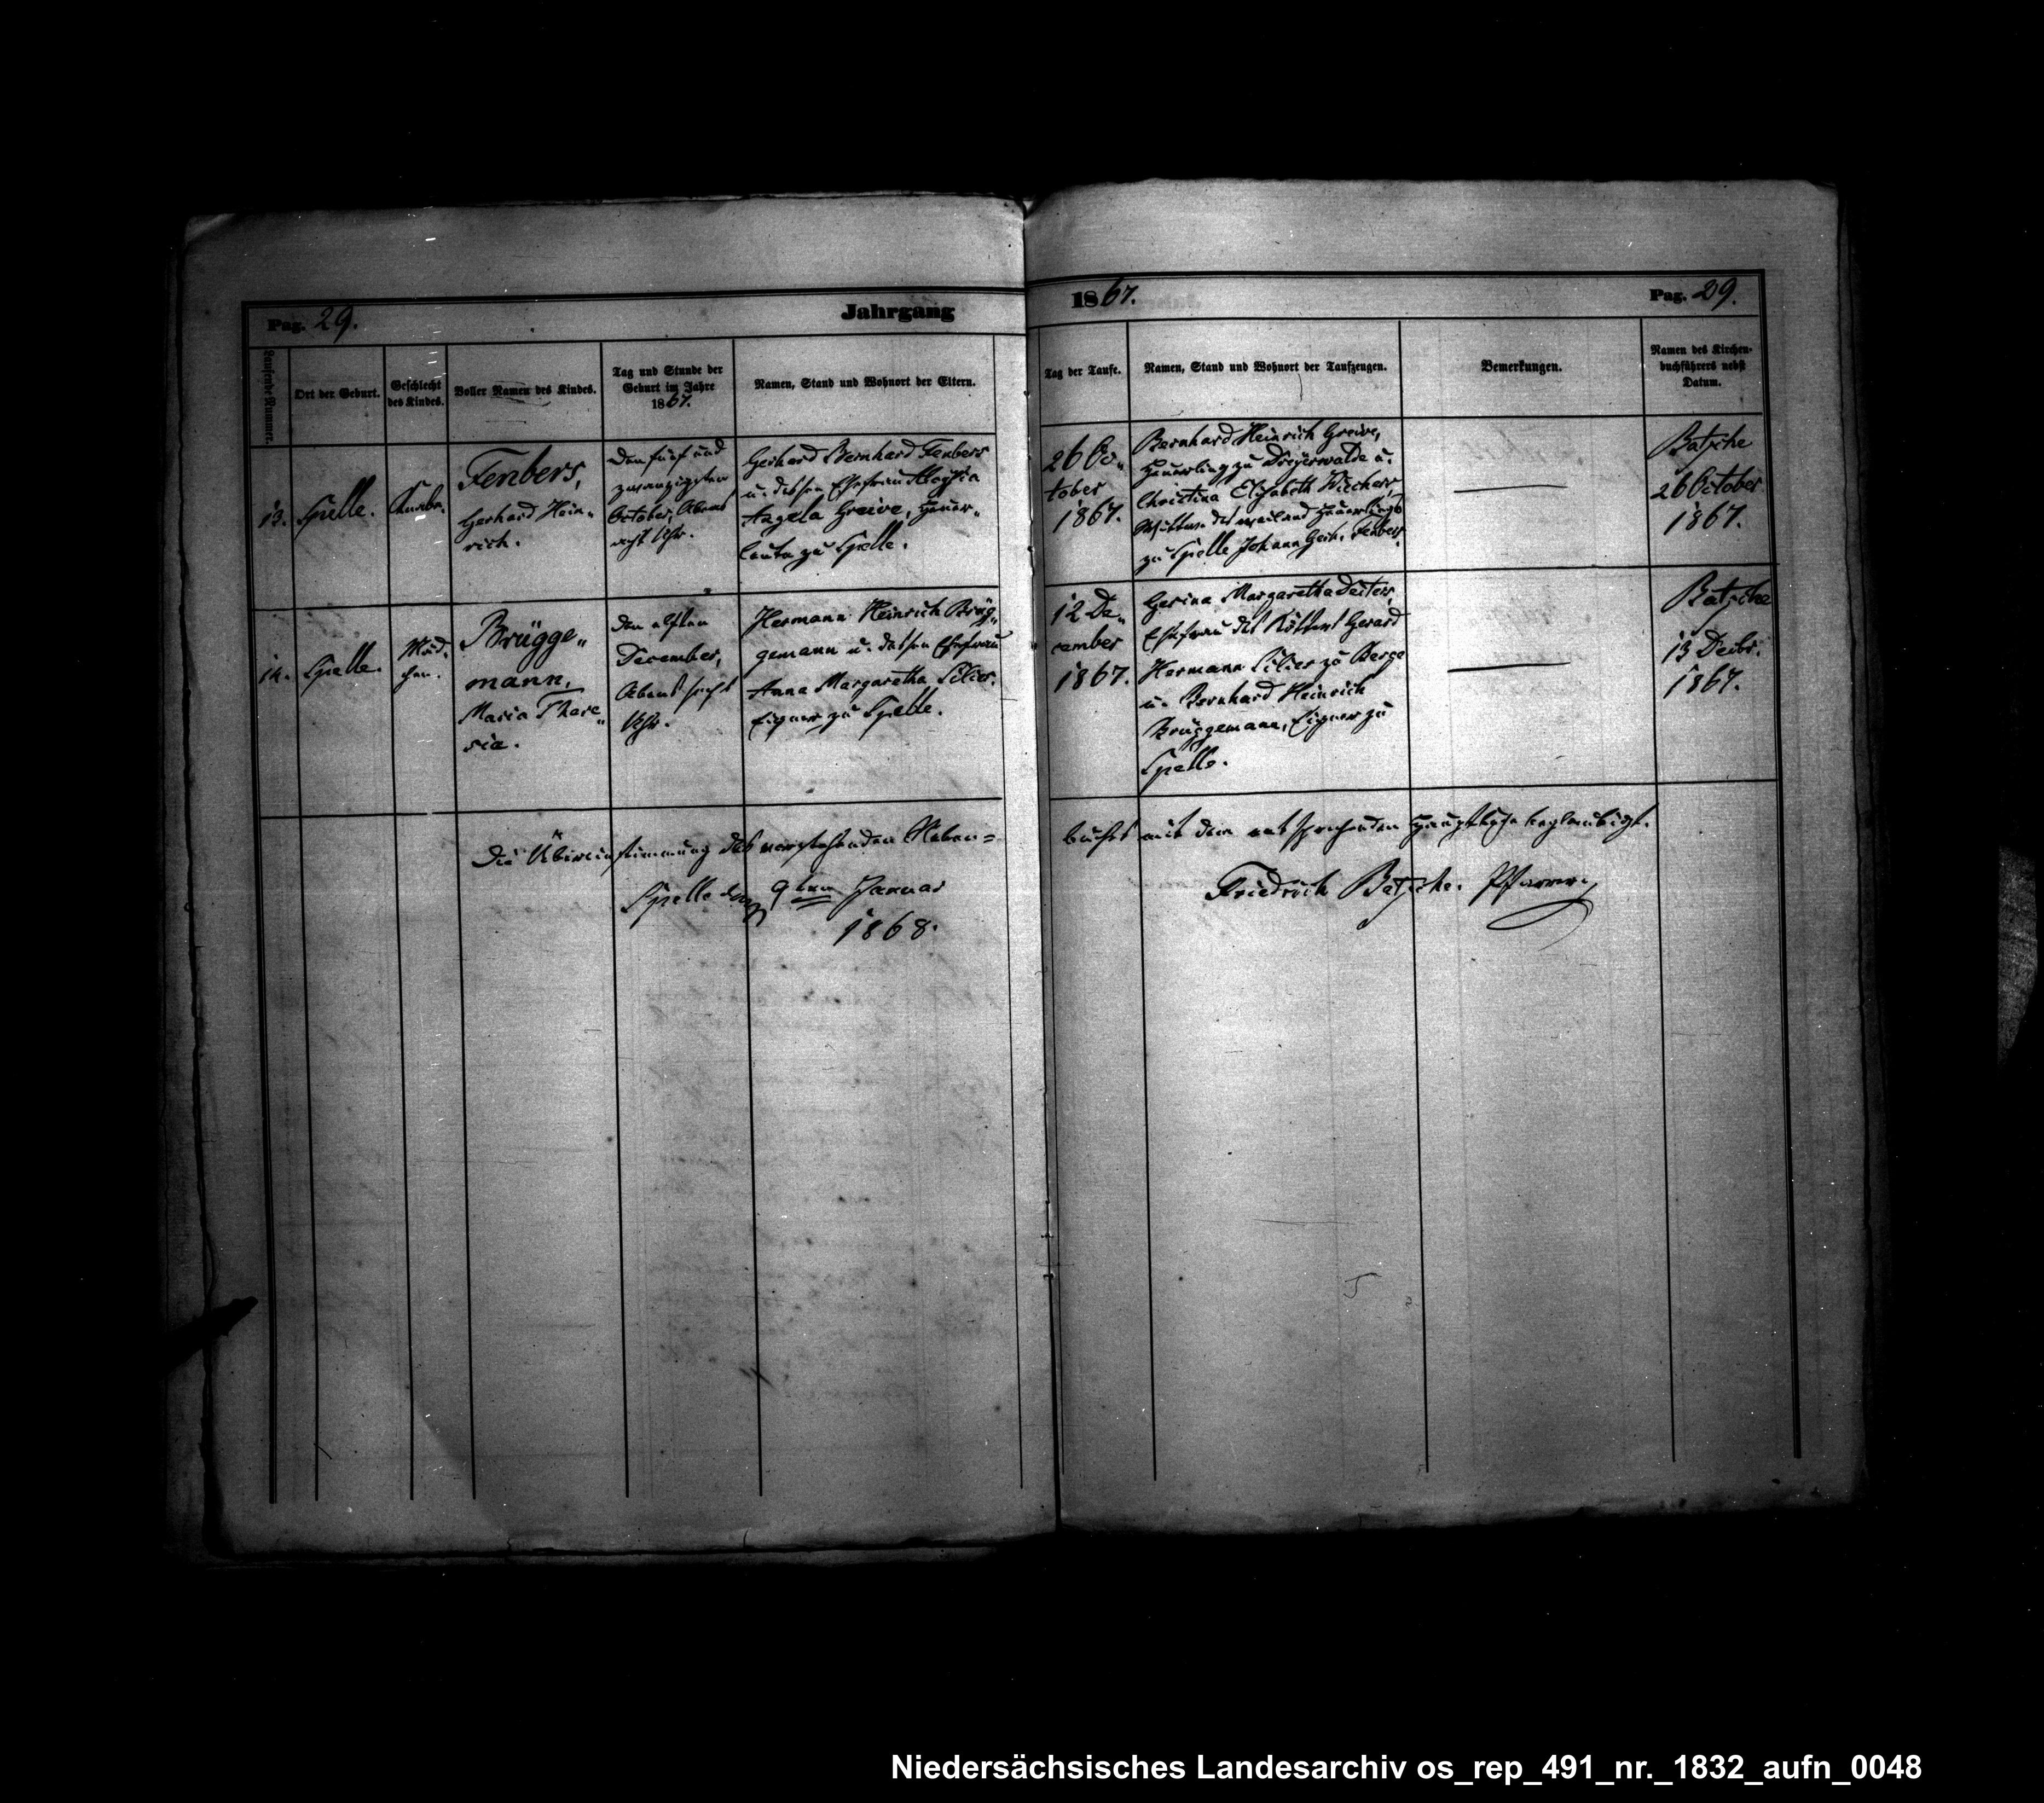 Pag. 29.
Jahrgang
1867.
Pag. 29.
Laufende Nummer.
Ort der Geburt.
Geschlecht
des Kindes.
Voller Namen des Kindes.
Tag und Stunde der
Geburt im Jahre
1867.
Namen, Stand und Wohnort der Eltern.
Tag der Taufe.
Namen, Stand und Wohnort der Taufzeugen.
Bemerkungen.
Namen des Kirchen-
buchführers nebst
Datum.
13.
Spelle.
Knabe.
Fenbers,
Gerhard Hein„
rich.
Den fünf und
zwanzigsten
October, Abends
acht Uhr.
Gerhard Bernhard Fenbers
u. dessen Ehefrau Aloysia
Angela Greive, Heuer„
leute zu Spelle.
26 Oc„
tober
1867.
Bernhard Heinrich Greive,
Heuerling zu Dreyerwalde u.
Christina Elisabeth Wiechers
Wittwe des weiland Heuerlings
zu Spelle Johann Gerh. Fenbers.
Batsche
26 October
1867.
14.
Spelle.
Mäd„
chen.
Brügge„
mann,
Maria There„
sia.
Den elften
December,
Abends sechs
Uhr.
Hermann Heinrich Brüg„
gemann u. dessen Ehefrau
Anna Margaretha Silies.
Eigner zu Spelle.
12 De„
cember
1867.
Gesina Margaretha Deiters,
Ehefrau des Kötters Gerard
Hermann Silies zu Berge
u. Bernhard Heinrich
Brüggemann, Eigner zu
Spelle.
Batsche
13 Decbr.
1867.
Die Übereinstimmung des vorstehenden Neben=
buchs mit dem entsprechenden Hauptbuche beglaubigt.
Spelle den 9ten Januar
1868.
Friedrich Batsche. Pfarrer.
Niedersächsisches Landesarchiv os_rep_491_nr._1832_aufn_0048